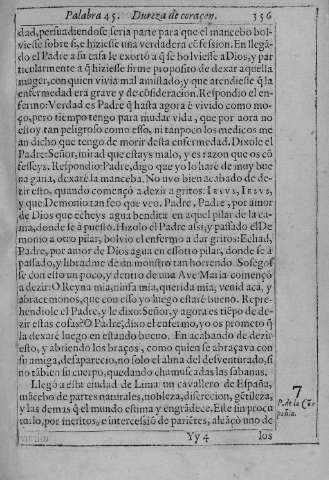 Palabra 45. Dureza de coraçon. 356
dad, persuadiendose seria parte para que el mancebo bol-
viesse sobre si, e hiziesse una verdadera cōfesion. En llegā-
do el Padre a su casa le exortò a q̃ se bolviesse a Dios, y par
ticularmente a q̃ hiziesse firme proposito de dexar aquella
muger, con quien vivia mal amistado, y que atendiesse q̃ la
enfermedad era grave y de cōsideracion. Respondio el en-
fermo: Verdad es Padre q̃ hasta agora è vivido como mo-
ço, pero tiempo tengo para mudar vida, que por aora no
estoy tan peligroso como esso, ni tanpoco los medicos me
an dicho que tengo de morir desta enfermedad. Dixole el
Padre: Señor, mirad que estays malo, y es razon que os cō
fesseys. Respondio: Padre, digo que yo lo harè de muy bue
na gana, dexarè la manceba. No uvo bien acabado de de-
zir esto, quando començò a dezir a gritos: IESVS, IESVS,
y que Demonio tan feo que veo. Padre, Padre, por amor
de Dios que echeys agua bendita en aquel pilar de la ca-
ma, donde se à puesto. Hizolo el Padre assi, y passado el De
monio a otro pilar, bolvio el enfermo a dar gritos: Echad,
Padre, por amor de Dios agua en essotro pilar, donde se à
passado, y libradme de un monstro tan horrendo. Sosegò
se con esto un poco, y dentro de una Ave Maria començò
a dezir: O Reyna mia, ninfa mia, querida mia; venid acà, y
abraçemonos, que con esso yo luego estarè bueno. Repre-
hendiole el Padre, y le dixo: Señor, y agora es tiēpo de de-
zir estas cosas? O Padre, dixo el enfermo, yo os prometo q̃
la dexarè luego en estando bueno. En acabando de dezir
esto, y abriendo los braços, como quien se abraçava con
su amiga, desaparecio, no solo el alma del desventurado, si
no tābiē su cuerpo, quedando chamuscadas las sabanas.
Llegò a esta ciudad de Lima un cavallero de España,
mācebo de partes naturales, nobleza, discrecion, gētileza,
y las demas q̃ el mundo estima y engrādece. Este sin procu
rarlo, por meritos, e intercessiō de pariētes, alcaçò uno de
7
P. de la Cō-
pañia.
Yy 4 los